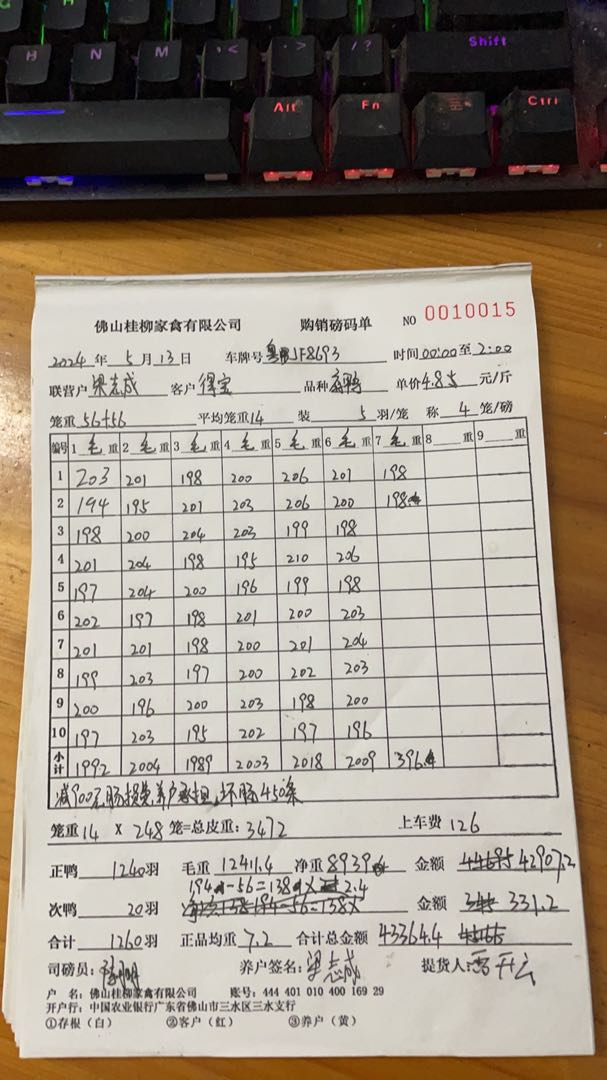 H N M , < . > / ? Shift
Alt Fn Ctrl
佛山桂柳家禽有限公司 购销磅码单 NO 0010015
2024 年 5 月 13 日 车牌号 粤JF8693 时间 00:00 至 2:00
联营户 梁志成 客户 得宝 品种 单价 4.85 元/斤
笼重 56+56 平均笼重 14 装 5 羽/笼 称 4 笼/磅
编号 1 毛 重 2 毛 重 3 毛 重 4 毛 重 5 毛 重 6 毛 重 7 毛 重 8 重 9 重
1 203 201 198 200 206 201 198
2 194 195 201 203 206 200 198
3 198 200 204 203 199 198
4 201 204 198 195 210 206
5 197 204 200 196 199 198
6 202 197 198 201 200 203
7 201 201 198 200 201 204
8 199 203 197 200 202 203
9 200 196 200 203 198 200
10 197 203 195 202 197 196
小计 1992 2004 1989 2003 2018 2009 396
减900元肠损失养户承担,坏肠450条
笼重 14 X 248 笼=总皮重: 3472 上车费 126
正鸭 1240 羽 毛重 12411.4 净重 8939 金额 44685 42907.2
194-56=138 X 2.4
次鸭 20 羽 194-56=138X 金额 345 331.2
合计 1260 羽 正品均重 7.2 合计总金额 43364.4
司磅员: 养户签名: 梁志成 提货人:
户 名: 佛山桂柳家禽有限公司 账号: 444 401 010 400 169 29
开户行: 中国农业银行广东省佛山市三水区三水支行
①存根(白) ②客户(红) ③养户(黄)